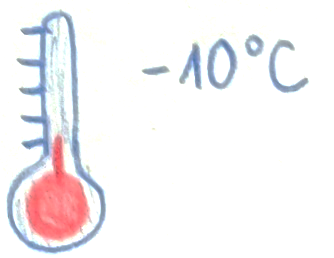 -10°C